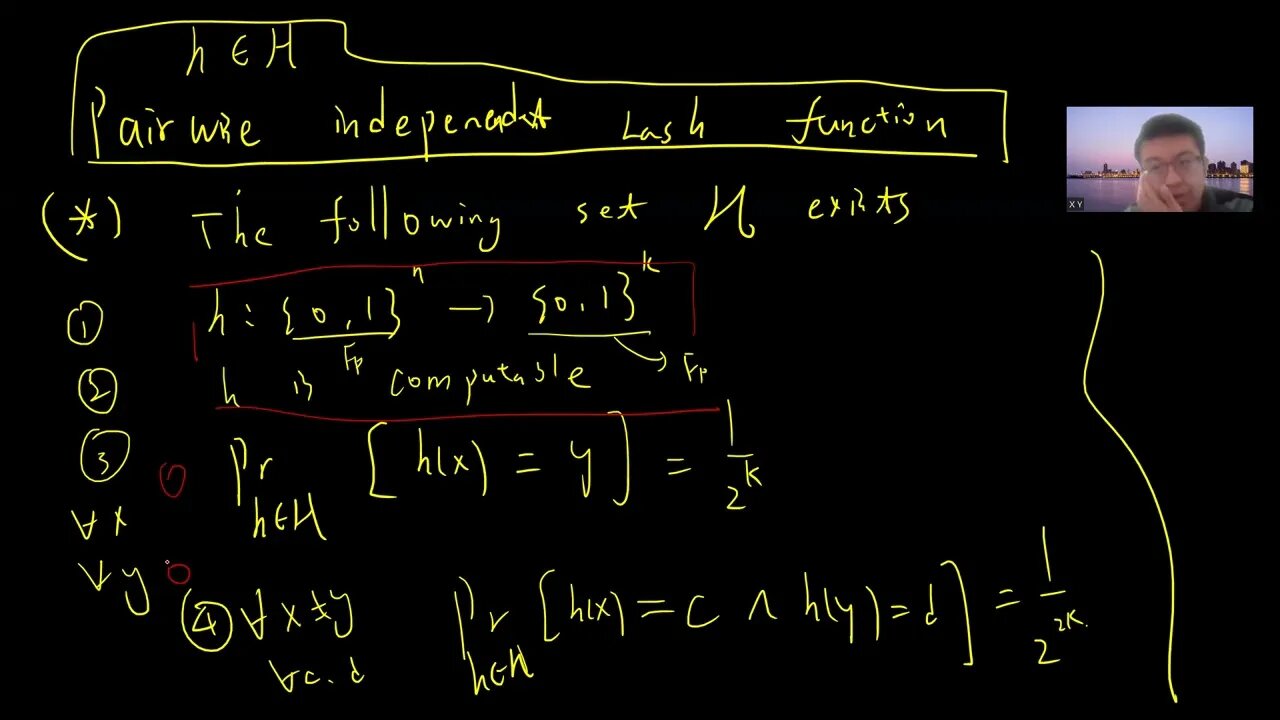 h ∈ H
Pairwise independent hash function
(*) The following set H exists
① h : {0,1}^n → {0,1}^k
Fp Fp
② h is computable
③ Pr_{h∈H} [h(x) = y] = 1/2^k
∀x
∀y
④ ∀x≠y Pr_{h∈H} [h(x) = c ∧ h(y) = d] = 1/2^{2k}.
∀c.d
X Y